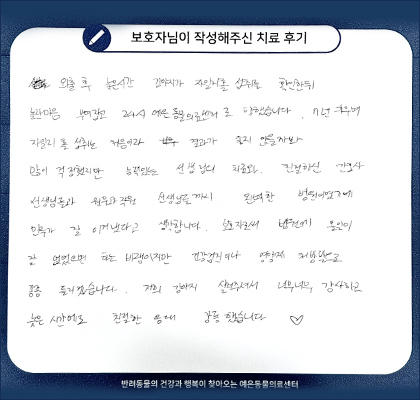 보호자님이 작성해주신 치료 후기
외출 후 늦은시간 강아지가 자일리톨 섭취를 확인한뒤
놀란마음 부여잡고 24시 예은 동물의료센터로 달렸습니다.
자일리톨 섭취는 처음이라 결과가 좋지 않을까봐
많이 걱정했지만 능력있는 선생님의 치료와, 친절하신 간호사
선생님들과 선생님들까지 완벽한 병원이었기에
하루가 잘 이겨냈다고 생각합니다. 보호자로써 병원에 올일이
잘 없었으면 하는 바램이지만 건강검진이나 영양제 처방받으러
종종 들리겠습니다. 저희 강아지 살려주셔서 너무너무 감사하고
늦은 시간에도 친절한 응대 감동 했습니다 ♡
반려동물의 건강과 행복이 찾아오는 예은동물의료센터